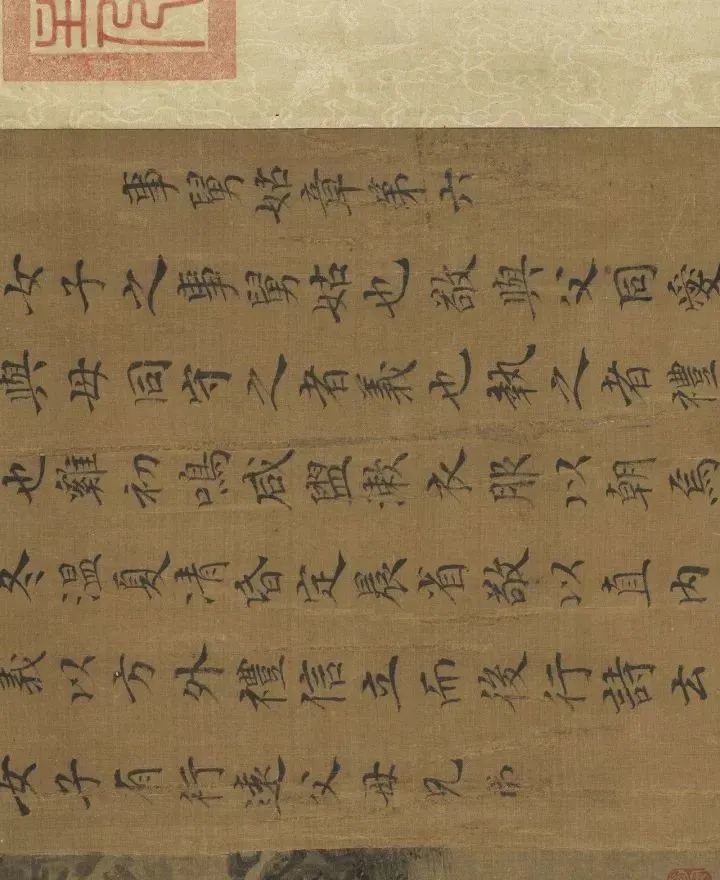 事舅姑章第六
女子之事舅姑也敬與父同愛
與母同守之者義也執之者禮
也雞初鳴咸盥漱衣服以朝焉
冬溫夏清昏定晨省敬以直內
義以方外禮信立而後行詩云
女子有行遠父母兄弟